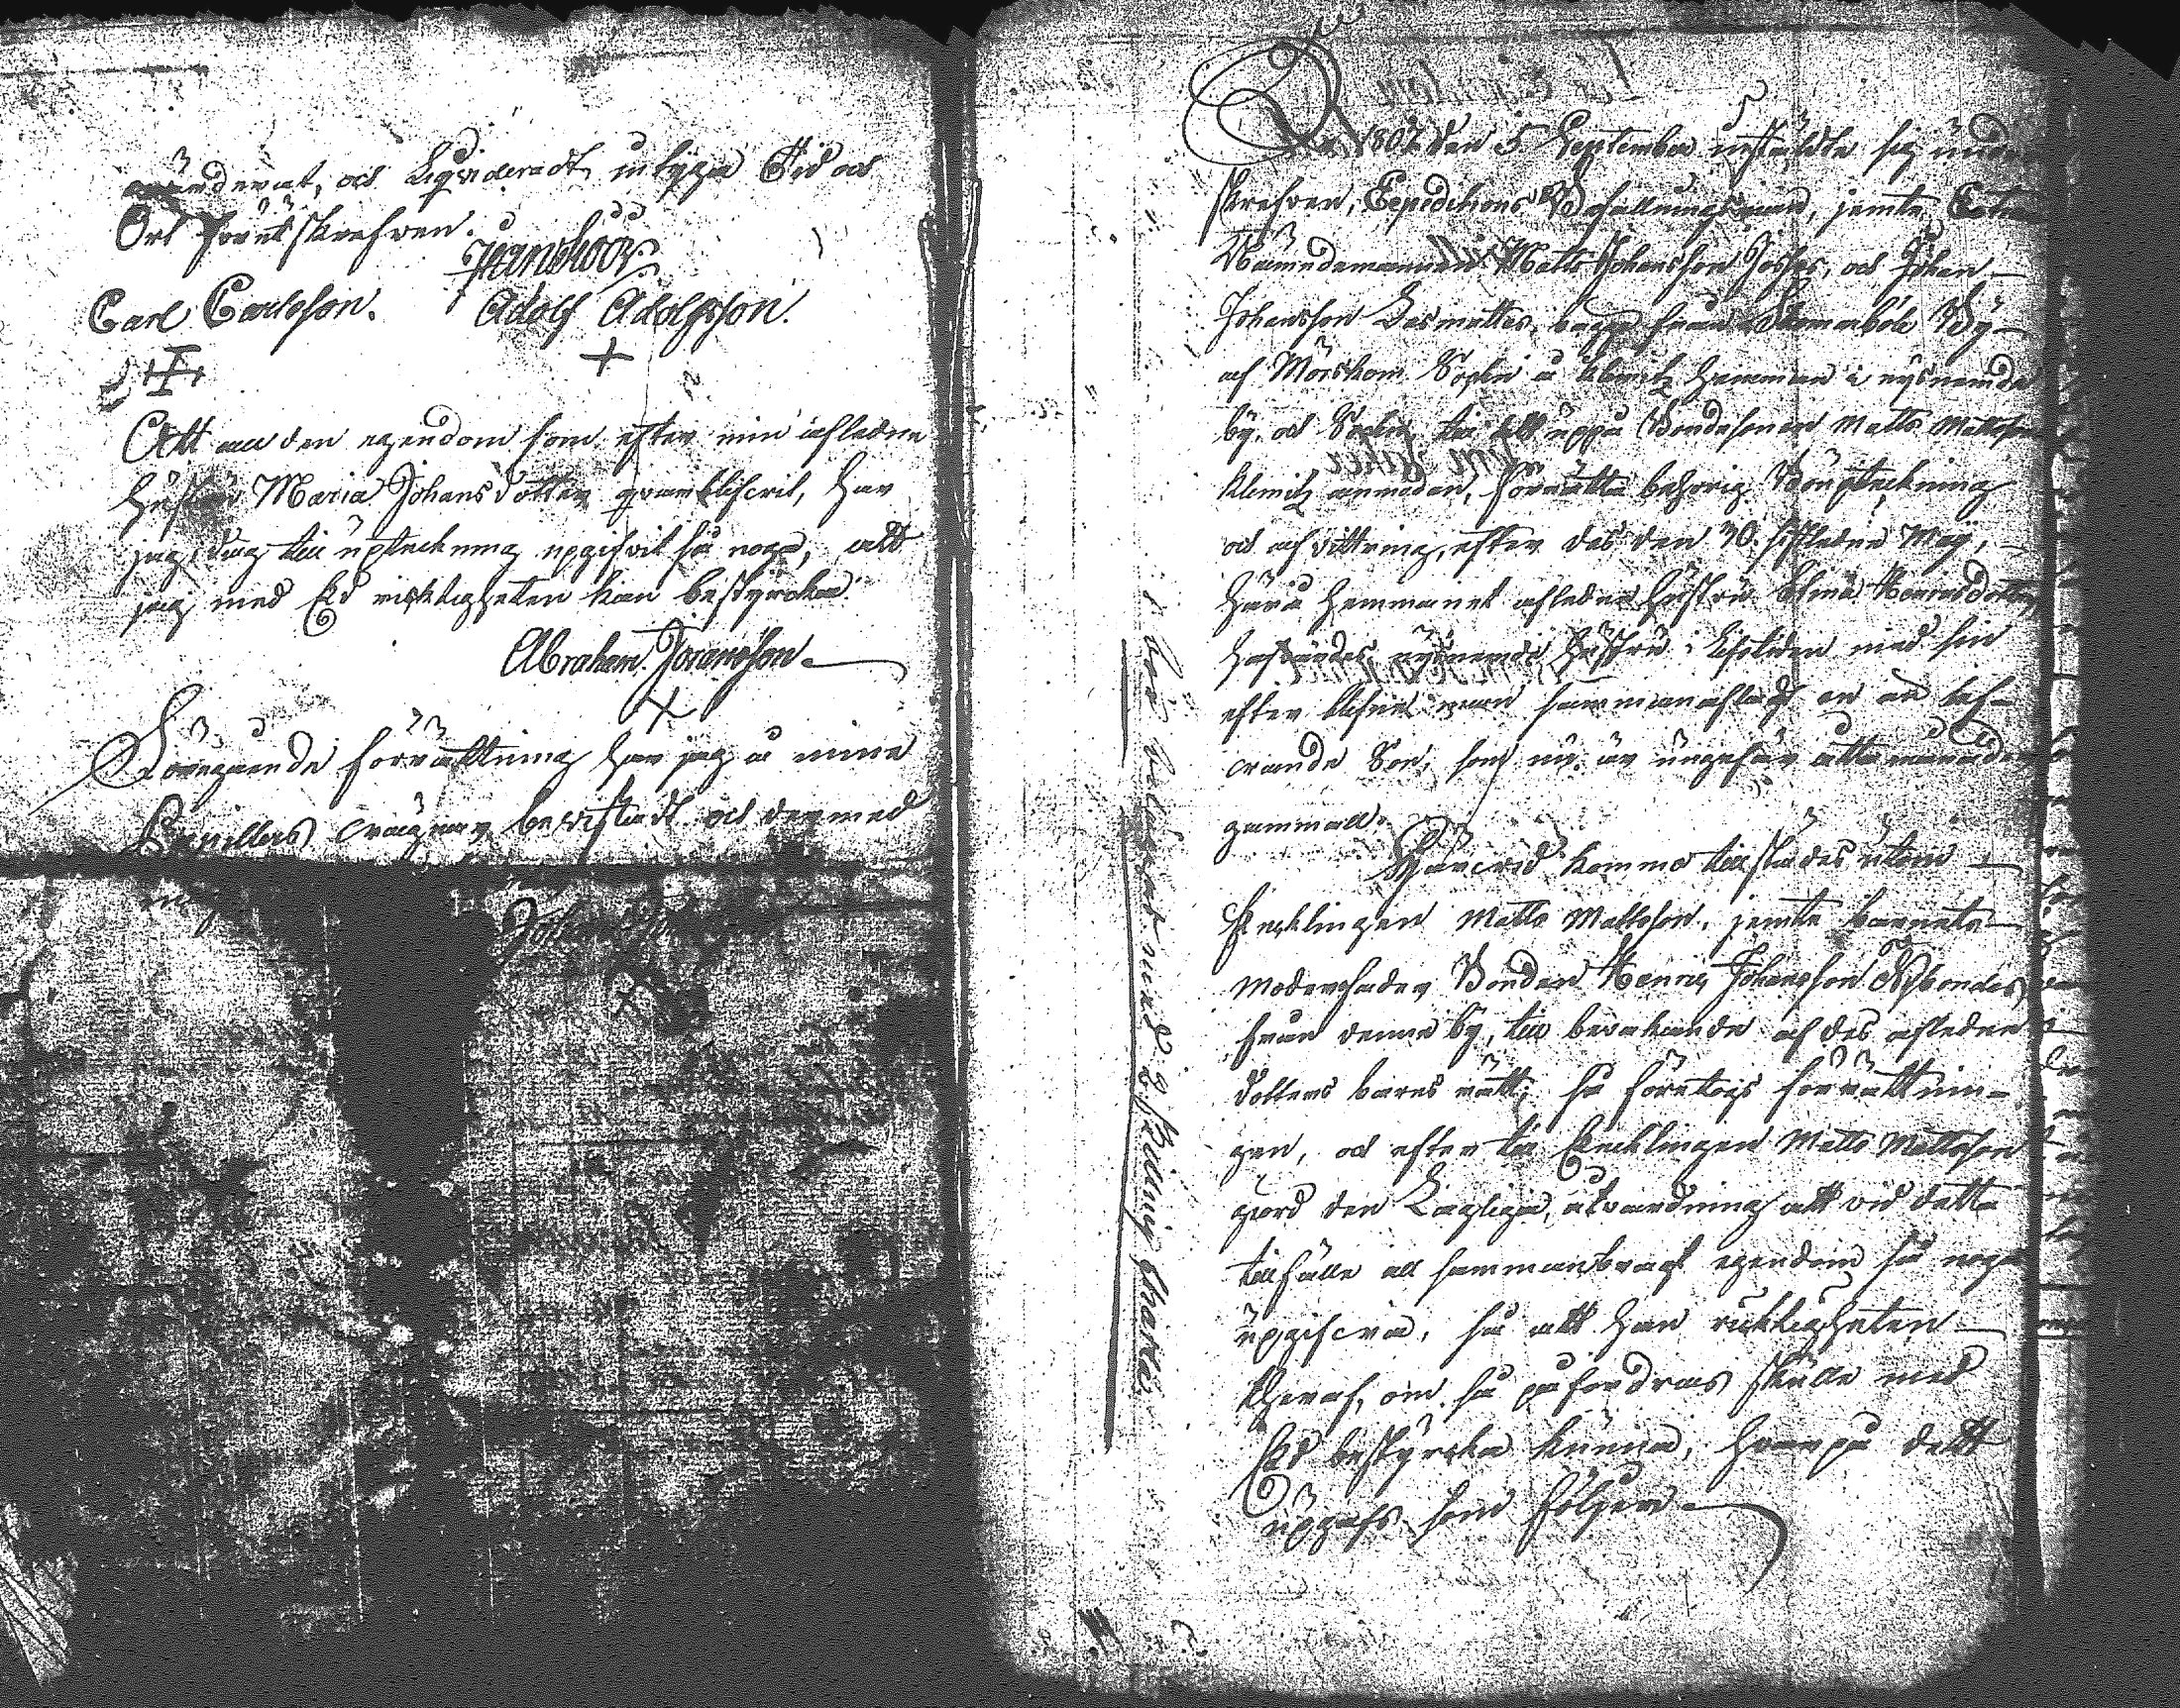 värderat, och Liqviderat, intyga Tid och
Ort förutskrefven.
Carl Carlsson. Adolf Adolfsson.
Att all den egendom som efter min afledne
Hustru Maria Johansdotter qvarblifvit, har
jag i dag till upteckning upgifvit så noga, att
jag med Ed ricktigheten kan bestyrcka.
Abraham Göransson
Föregående förrättning har jag å mine
vägnar bevistadt och dermed
Johan
År 1802 den 5 September instälde sig under
skrefven, Expeditions Befallningsman, jemte
Nämndemannen Matts Johansson Josses, och Johan
Johansson Lasmattes, bägge från By
af Mörskom Sockn å Klemitz Hemman i nysnemde
by, och Sockn till att uppå Bondesonen Matts Mattsson
Klemitz anmodan, förrätta behörig Bouptekning
och afvittring, efter des den 30 sistledne Maij,
Här å Hemmanet afledne Hustru Henricsdotter
hafvandes nysnemde Hustru i Lifstiden med sin
efterlefvne man sammanaflat en än lef-
vande Son, som nu är ungefär åtta månader
gammal.
Härvid kommo tillstädes utom
Encklingen Matts Mattsson, jemte barnets
Moderfader Bonden Henric Johansson Nybondas
från denne by, till bevakande af des afledne
dotters barns rätt; så företogs förrättnin-
gen, och efter till Encklingen Matts Mattsson
gjord den Lagliga åtvardning att vid detta
tillfälle all sammanbragt egendom så noga
uppgifva, så att han ricktigheten
theraf, om så påfordras skulle med
Ed bestyrcka kunna, hvarpå dett
upgafs som följer
med 8 skilling